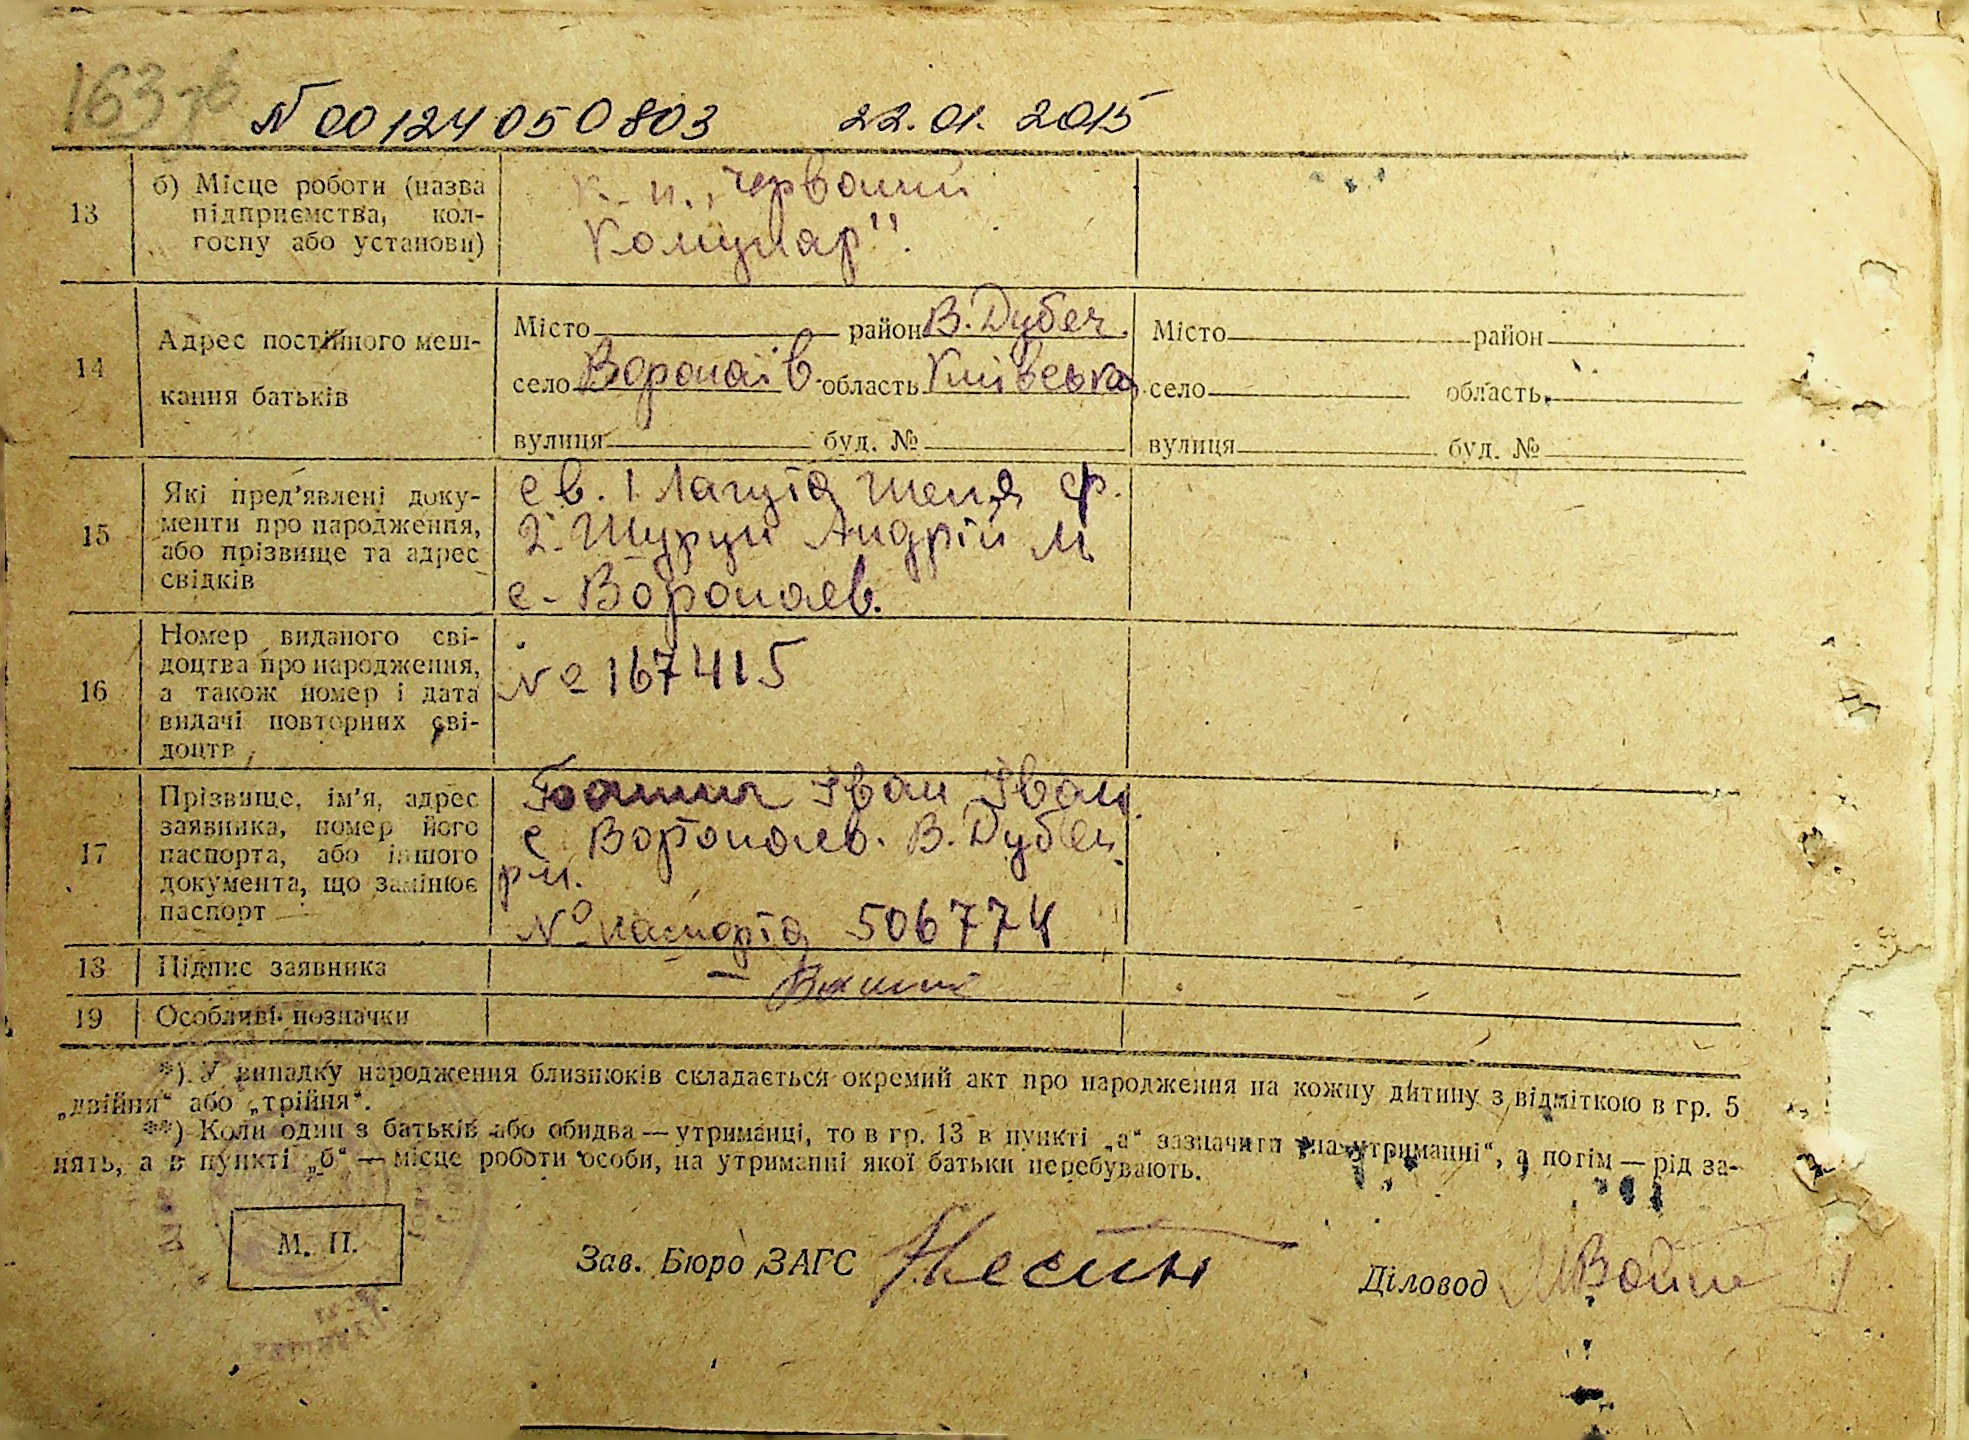 163 зв
N 00124050803 22.01.2015
13 б) Місце роботи (назва підприємства, кол-
госпу або установи)
к-п. „Червоний
Комунар".
14 Адрес постійного меш-
кання батьків
Місто район В. Дубеч.
село Воропаїв область Київська
вулиця буд. №
Місто район
село область
вулиця буд. №
15 Які пред'явлені доку-
менти про народження,
або прізвище та адрес
свідків
св. 1. Лагута ф.
2. Шурци Андрій М
с. Воропаев.
16 Номер виданого сві-
доцтва про народження,
а також номер і дата
видачі повторних сві-
доцтв
№ 167415
17 Прізвище, ім'я, адрес
заявника, номер його
паспорта, або іншого
документа, що замінює
паспорт
Іван Іван.
с Воропаев. В. Дубеч
рн.
№ паспорта 506774
18 Підпис заявника
19 Особливі позначки
*) У випадку народження близнюків складається окремий акт про народження на кожну дитину з відміткою в гр. 5
„двійня“ або „трійня“.
**) Коли один з батьків або обидва — утриманці, то в гр. 13 в пункті „а“ зазначити „на утриманні“, а потім — рід за-
нять, а в пункті „б“ — місце роботи особи, на утриманні якої батьки перебувають.
М. П.
Зав. Бюро ЗАГС
Діловод